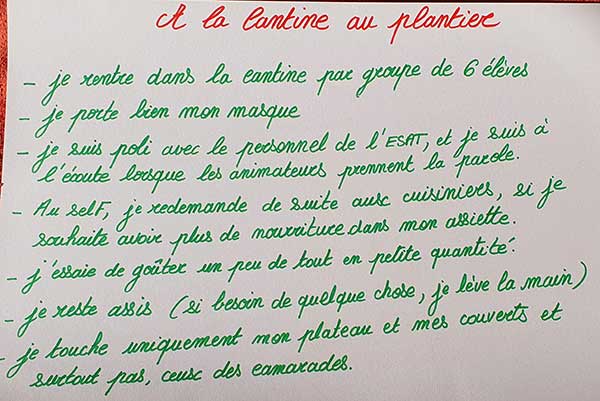 A la cantine au plantier
- je rentre dans la cantine par groupe de 6 élèves
- je porte bien mon masque
- je suis poli avec le personnel de l'ESAT, et je suis à
l'écoute lorsque les animateurs prennent la parole.
- Au self, je redemande de suite aux cuisiniers, si je
souhaite avoir plus de nourriture dans mon assiette.
- j'essaie de goûter un peu de tout en petite quantité.
- je reste assis (si besoin de quelque chose, je lève la main)
- je touche uniquement mon plateau et mes couverts et
surtout pas, ceux des camarades.